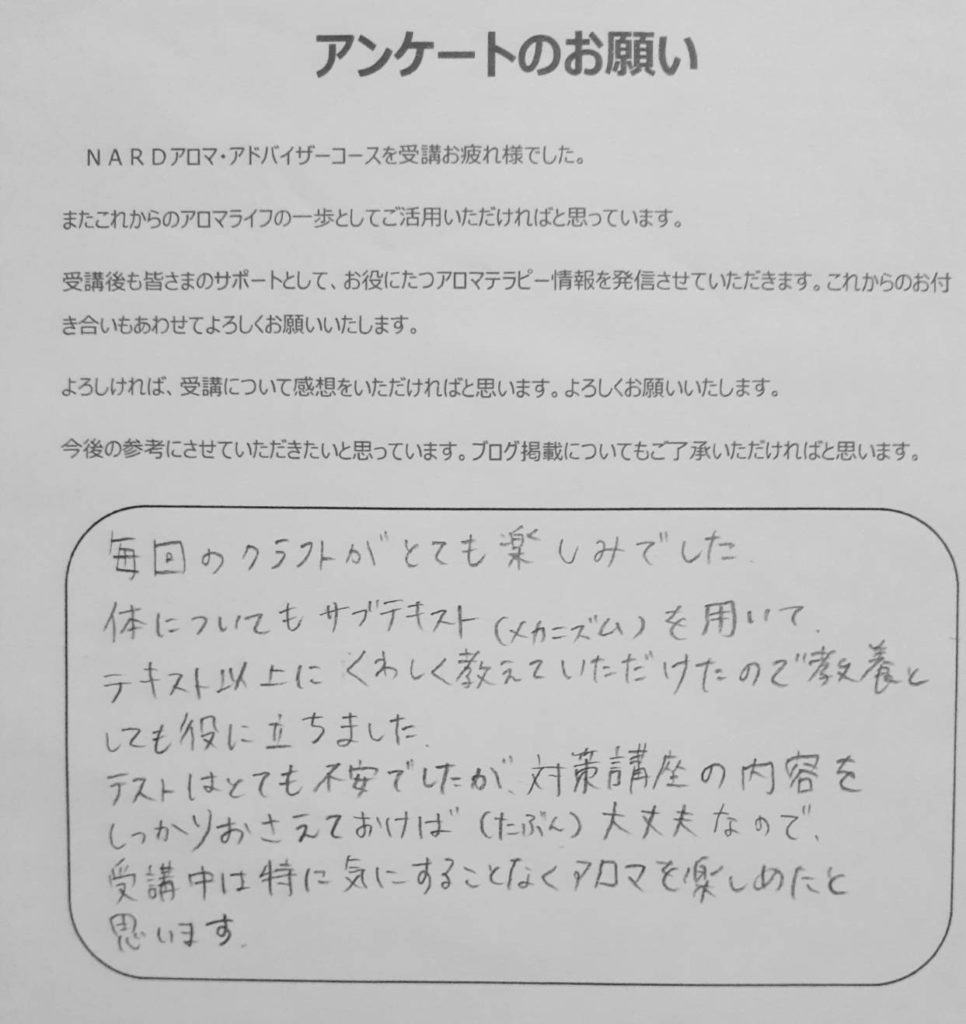 アンケートのお願い
ＮＡＲＤアロマ・アドバイザーコースを受講お疲れ様でした。
またこれからのアロマライフの一歩としてご活用いただければと思っています。
受講後も皆さまのサポートとして、お役にたつアロマテラピー情報を発信させていただきます。これからのお付
き合いもあわせてよろしくお願いいたします。
よろしければ、受講について感想をいただければと思います。よろしくお願いいたします。
今後の参考にさせていただきたいと思っています。ブログ掲載についてもご了承いただければと思います。
毎回のクラフトがとても楽しみでした.
体についてもサブテキスト(メカニズム)を用いて、
テキスト以上にくわしく教えていただけたので教養と
しても役に立ちました.
テストはとても不安でしたが、対策講座の内容を
しっかりおさえておけば(たぶん)大丈夫なので、
受講中は特に気にすることなくアロマを楽しめたと
思います.